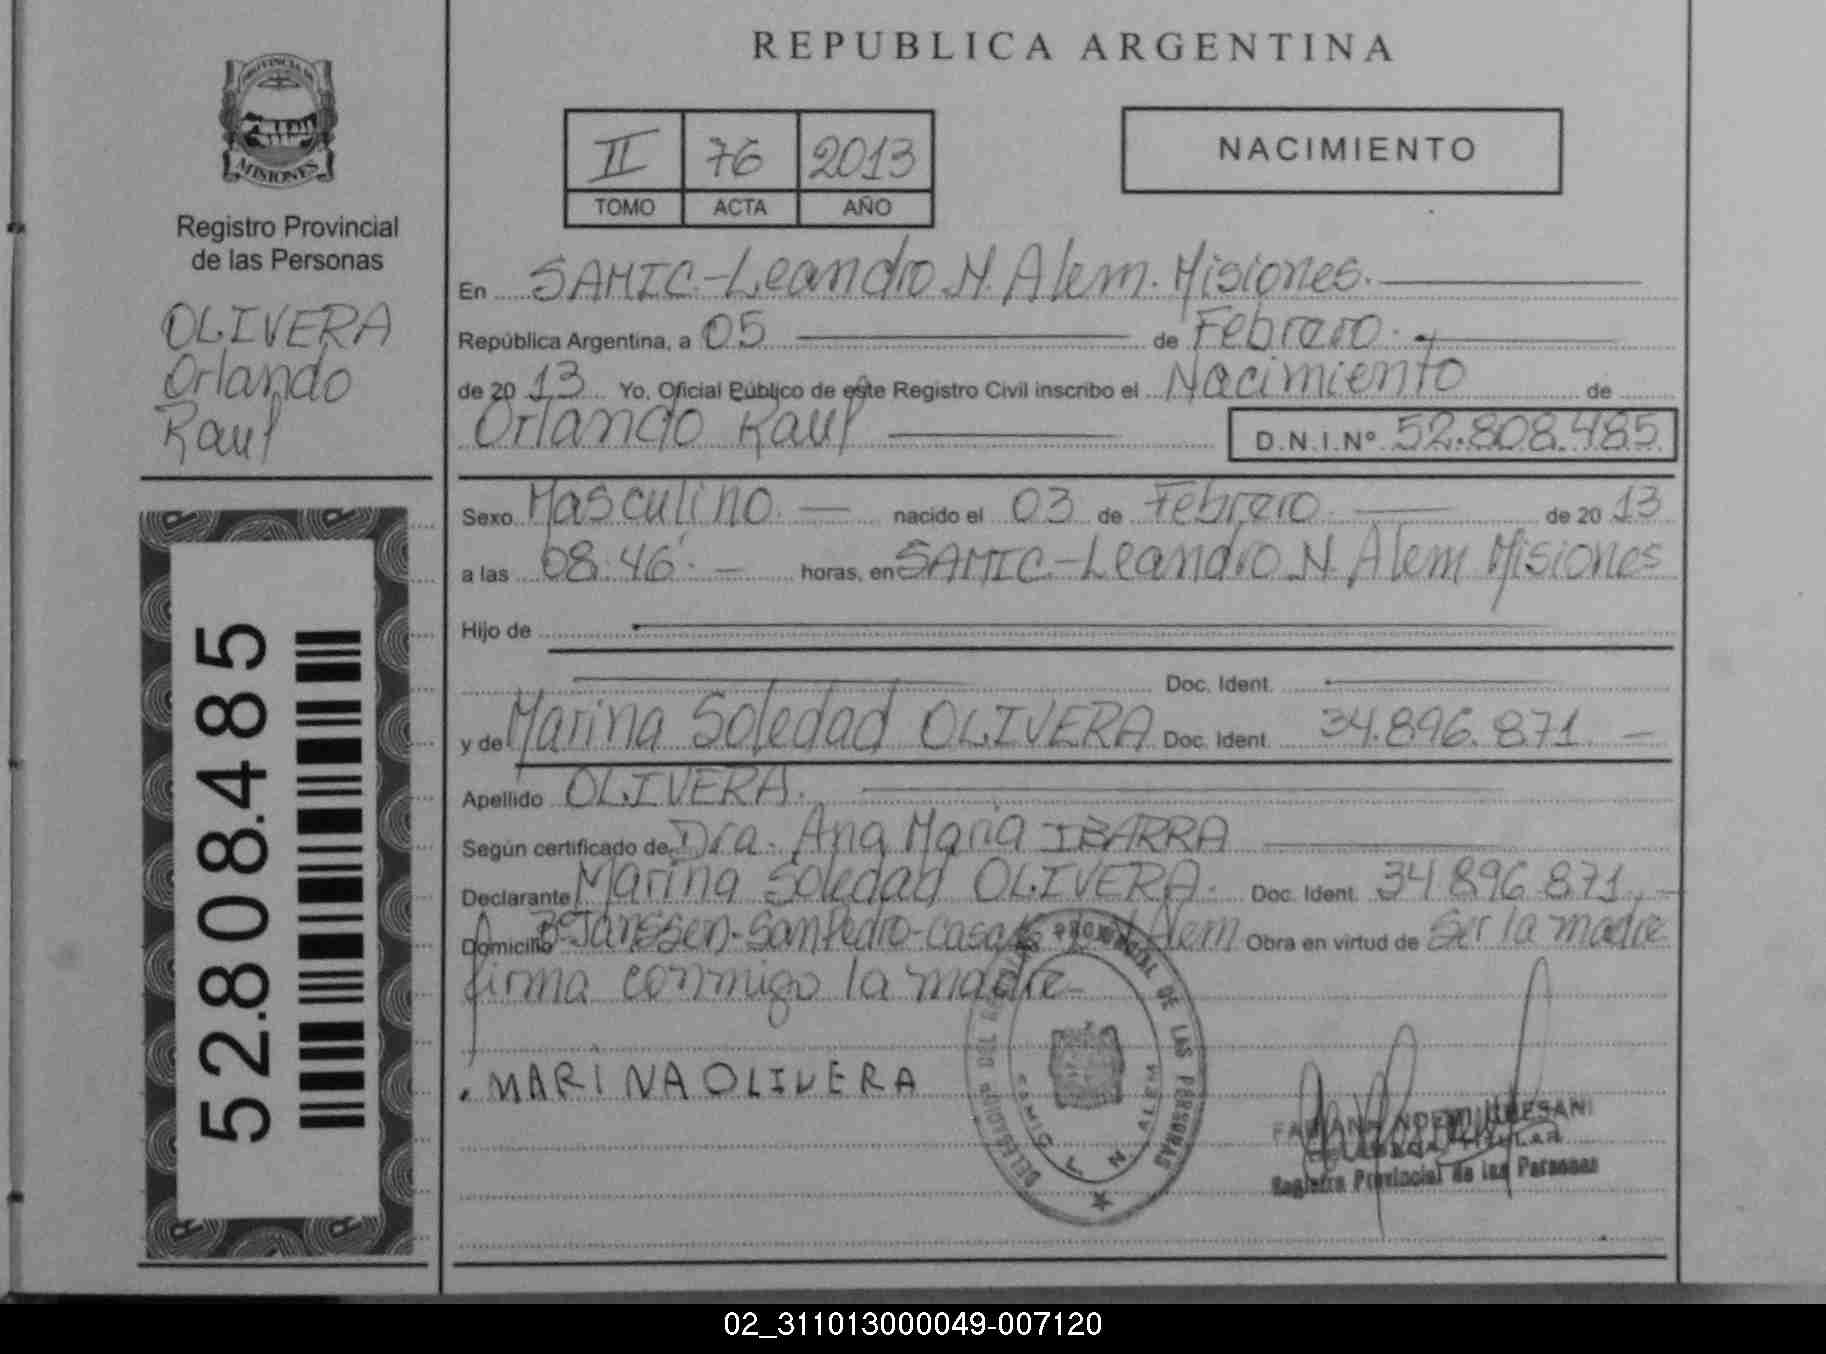 REPUBLICA ARGENTINA
PROVINCIA DE
MISIONES
Registro Provincial
de las Personas
OLIVERA
Orlando
Raul
52.808.485
II 76 2013
TOMO ACTA AÑO
NACIMIENTO
En SAMIC-Leandro N. Alem. Misiones.
República Argentina, a 05 de Febrero.
de 20 13 Yo, Oficial Público de este Registro Civil inscribo el Nacimiento de
Orlando Raul D.N.I.Nº 52.808.485
Sexo Masculino. nacido el 03 de Febrero. de 20 13
a las 08:46'. horas, en SAMIC.-Leandro N. Alem Misiones
Hijo de
Doc. Ident.
y de Marina Soledad OLIVERA Doc. Ident. 34.896.871.
Apellido OLIVERA.
Según certificado de Dra. Ana Maria IBARRA
Declarante Marina Soledad OLIVERA. Doc. Ident. 34.896.871.
Domicilio Bº Janssen-San Pedro-casa Alem Obra en virtud de Ser la madre
firma conmigo la madre-
MARINA OLIVERA
DELEGACION DEL REGISTRO PROVINCIAL DE LAS PERSONAS
SAMIC L N ALEM
FABIANA NOEMI
DELEGADA TITULAR
Registro Provincial de las Personas
02_311013000049-007120